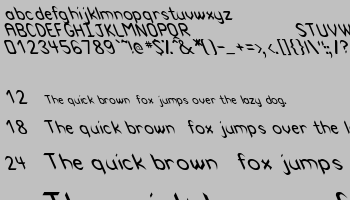 abcdefghijklmnopqrstuvwxyz
ABCDEFGHIJKLMNOPQR STUVW
0123456789
12 The quick brown fox jumps over the lazy dog.
18 The quick brown fox jumps over the l
24 The quick brown fox jumps